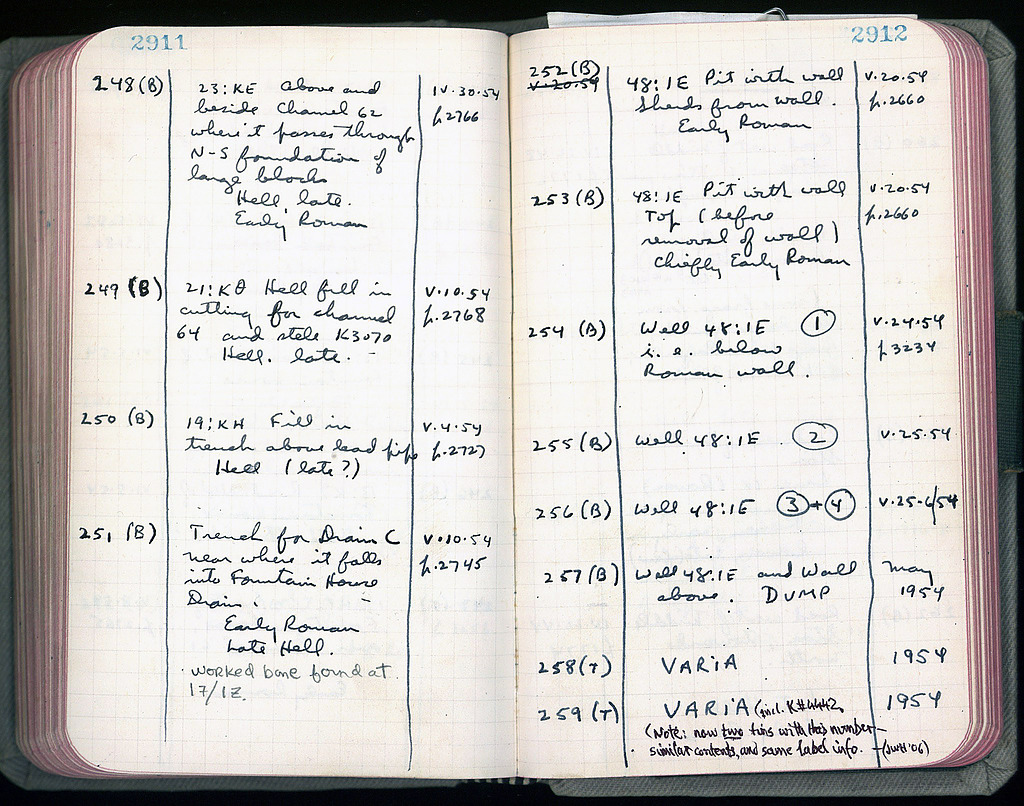 2911
248 (B) 23:KE Above and IV.30.54
beside Channel 62 p.2766
where it passes through
N-S foundation of
large blocks
Hell, late.
Early Roman
249 (B) 21:KΘ Hell fill in V.10.54
cutting for channel p.2768
64 and stele K3070
Hell. late. -
250 (B) 19:KH Fill in V.4.54
trench above lead pipe p.2727
Hell (late?)
251 (B) Trench for Drain C V.10.54
near where it falls p.2745
into Fountain House
Drain. -
Early Roman
Late Hell.
worked bone found at
17/IZ.
2912
252 (B) 48:IE Pit with wall V.20.54
V.20.54 Sherds from wall. p.2660
Early Roman
253 (B) 48:IE Pit with wall V.20.54
Top (before p.2660
removal of wall)
Chiefly Early Roman
254 (B) Well 48:IE 1 V.24.54
i.e. below p.3234
Roman wall.
255 (B) Well 48:IE. 2 V.25.54
256 (B) Well 48:IE 3+4 V.25-6/54
257 (B) Well 48:IE and Wall May
above. DUMP 1954
258 (T) VARIA 1954
259 (T) VARIA (incl. 1954
(Note: now two tins with this number-
similar contents, and same label info. -(JWH '06)